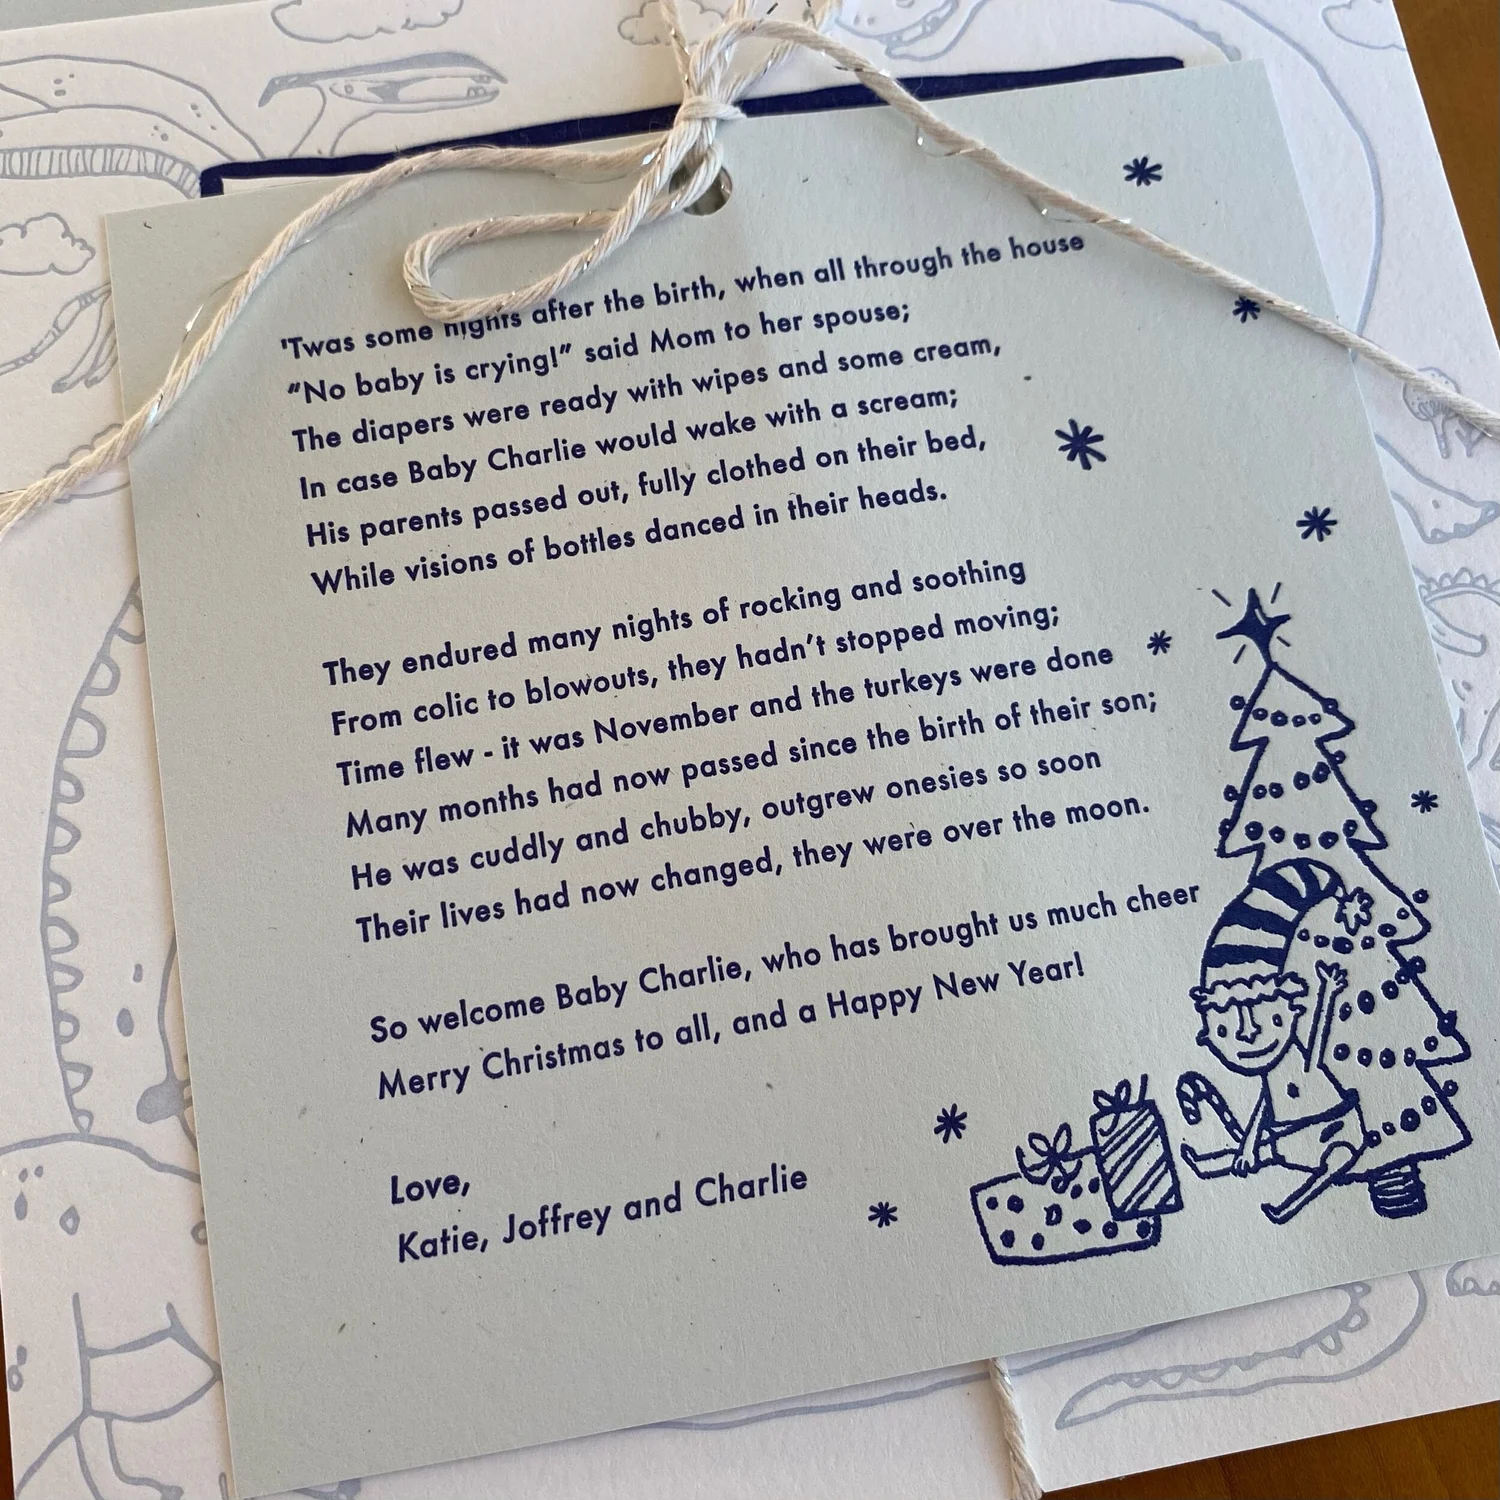 'Twas some nights after the birth, when all through the house
"No baby is crying!" said Mom to her spouse;
The diapers were ready with wipes and some cream,
In case Baby Charlie would wake with a scream;
His parents passed out, fully clothed on their bed,
While visions of bottles danced in their heads.
They endured many nights of rocking and soothing
From colic to blowouts, they hadn't stopped moving;
Time flew - it was November and the turkeys were done
Many months had now passed since the birth of their son;
He was cuddly and chubby, outgrew onesies so soon
Their lives had now changed, they were over the moon.
So welcome Baby Charlie, who has brought us much cheer
Merry Christmas to all, and a Happy New Year!
Love,
Katie, Joffrey and Charlie